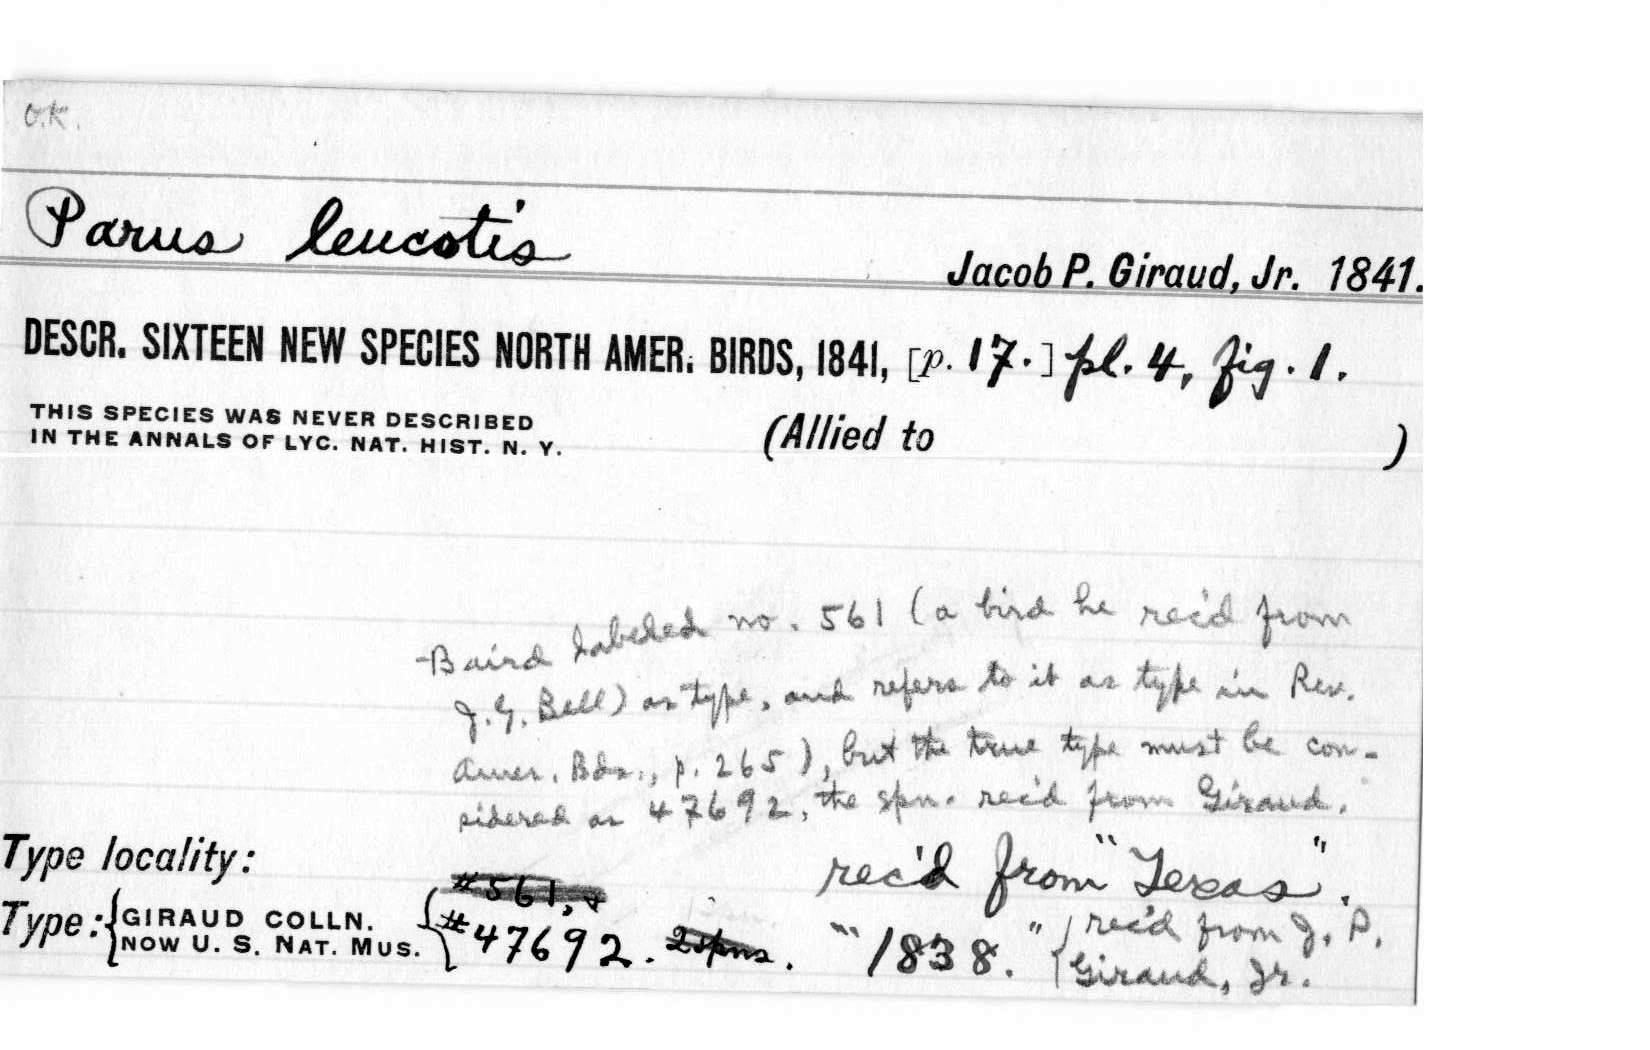 O.K.
Parus leucotis
Jacob P. Giraud, Jr. 1841.
DESCR. SIXTEEN NEW SPECIES NORTH AMER. BIRDS, 1841, [p. 17.] pl. 4, fig. 1.
THIS SPECIES WAS NEVER DESCRIBED
IN THE ANNALS OF LYC. NAT. HIST. N. Y.
(Allied to )
Baird labeled no. 561 (a bird he rec'd from
J. G. Bell) as type, and refers to it as type in Rev.
Amer. Bds., p. 265), but the true type must be con-
sidered as 47692, the spn. rec'd from Giraud.
Type locality:
rec'd from "Texas".
Type: { GIRAUD COLLN.
NOW U. S. NAT. MUS.
#561, &
#47692. 2 spns.
"1838."
rec'd from J. P.
Giraud, Jr.